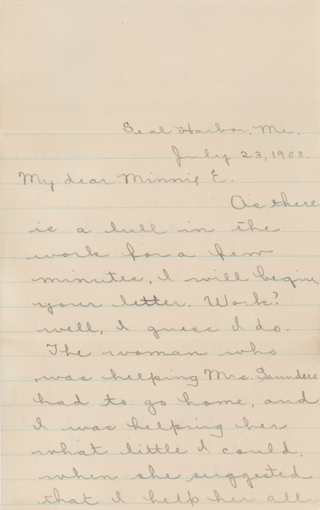 Seal Harbor, Me.
July 23, 1900.
My dear Minnie E.
As there
is a lull in the
work for a few
minutes, I will begin
your letter. Work?
well, I guess I do.
The woman who
was helping Mrs. Saunders
had to go home, and
I was helping her
what little I could,
when she suggested
that I help her all